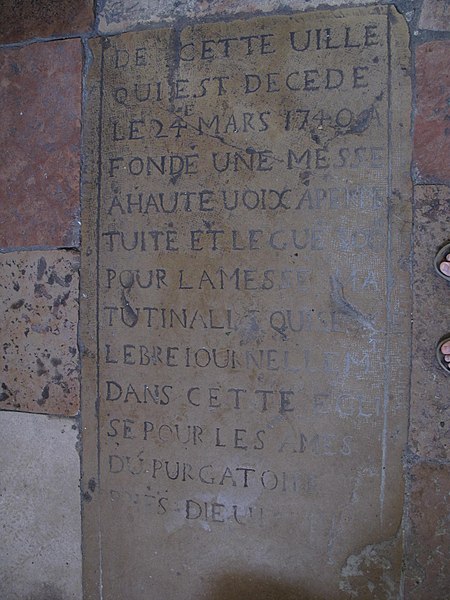 DE CETTE UILLE
QUI EST DECEDE
LE 24E MARS 1740 A
FONDÉ UNE MESSE
A HAUTE UOIX A PERPE
TUITE ET LEGUE
POUR LA MESSE MA
TUTINALLE QUI SE CE
LEBRE IOURNELLEM
DANS CETTE EGLI
SE POUR LES AMES
DU PURGATOIRE
PRIES DIEU